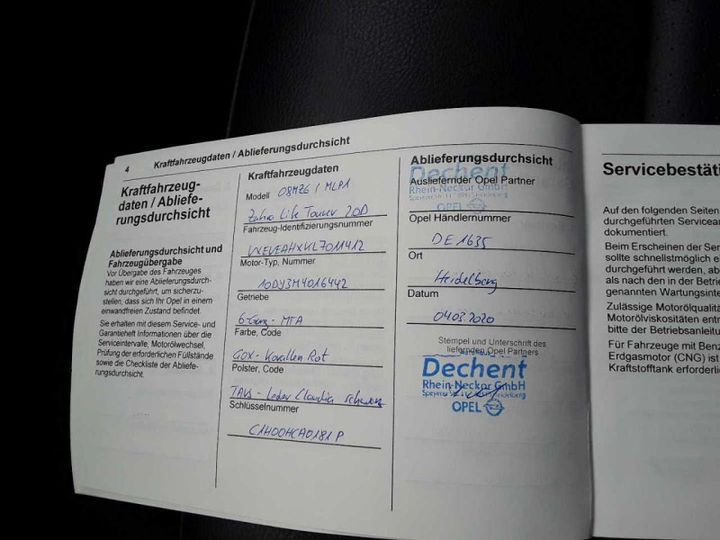 4 Kraftfahrzeugdaten / Ablieferungsdurchsicht
Kraftfahrzeug-
daten / Abliefe-
rungsdurchsicht
Ablieferungsdurchsicht und
Fahrzeugübergabe
Vor Übergabe des Fahrzeuges
haben wir eine Ablieferungsdurch-
sicht durchgeführt, um sicherzu-
stellen, dass sich Ihr Opel in einem
einwandfreien Zustand befindet.
Sie erhalten mit diesem Service- und
Garantieheft Informationen über die
Serviceintervalle, Motorölwechsel,
Prüfung der erforderlichen Füllstände
sowie die Checkliste der Abliefe-
rungsdurchsicht.
Kraftfahrzeugdaten
Modell 08MZ6 / MLP1
Zafira Life Tourer 20D
Fahrzeug-Identifizierungsnummer
VXEVEAHXKL7011412
Motor-Typ, Nummer
10DY3M4016442
Getriebe
6-Gang - MTA
Farbe, Code
GOX - Korallen Rot
Polster, Code
TAVS - Leder Claudia schwarz
Schlüsselnummer
C1H00HCA0181P
Ablieferungsdurchsicht
Dechent
Ausliefernder Opel Partner
Rhein-Neckar GmbH
OPEL
Opel Händlernummer
DE1635
Ort
Heidelberg
Datum
04.03.2020
Stempel und Unterschrift des
liefernden Opel Partners
Dechent
Rhein-Neckar GmbH
OPEL
Servicebestäti
Auf den folgenden Seiten
durchgeführten Servicear
dokumentiert.
Beim Erscheinen der Ser
sollte schnellstmöglich e
durchgeführt werden, ab
als nach den in der Betrie
genannten Wartungsinte
Zulässige Motorölqualitä
Motorölviskositäten entn
bitte der Betriebsanleitu
Für Fahrzeuge mit Benz
Erdgasmotor (CNG) ist
Kraftstofftank erforderlic